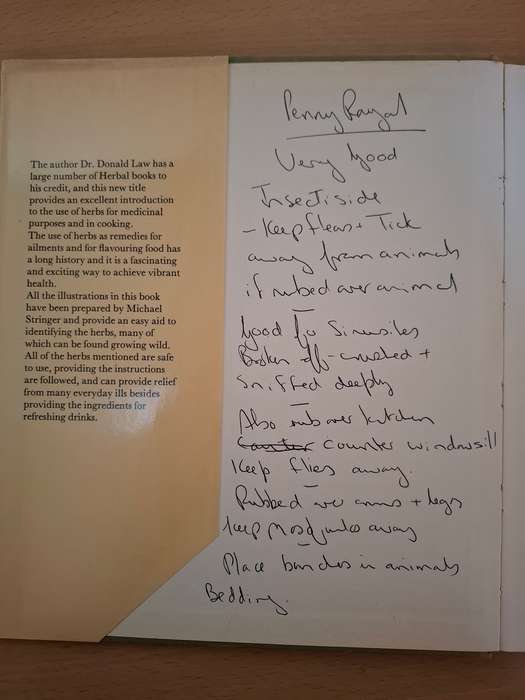 The author Dr. Donald Law has a
large number of Herbal books to
his credit, and this new title
provides an excellent introduction
to the use of herbs for medicinal
purposes and in cooking.
The use of herbs as remedies for
ailments and for flavouring food has
a long history and it is a fascinating
and exciting way to achieve vibrant
health.
All the illustrations in this book
have been prepared by Michael
Stringer and provide an easy aid to
identifying the herbs, many of
which can be found growing wild.
All of the herbs mentioned are safe
to use, providing the instructions
are followed, and can provide relief
from many everyday ills besides
providing the ingredients for
refreshing drinks.
Penny Royal
Very Good
Insectiside
- Keep fleas + Tick
away from animals
if rubed over animal
Good for Sinusiles
Broken off - crushed +
Sniffed deeply
Also rub over kitchen
Counter windowsill
Keep flies away.
Rubbed over arms + legs
keep mosquitoes away
Place bunches in animals
Bedding.